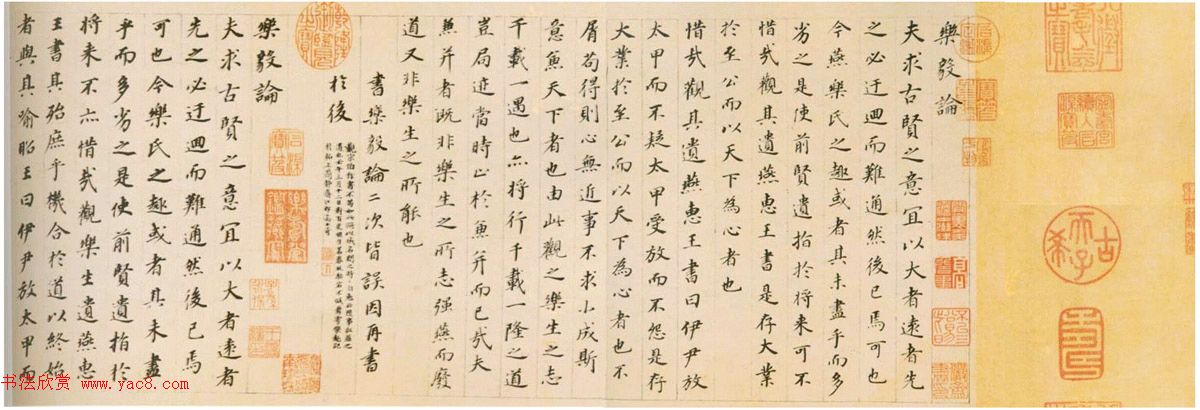 古希天子
樂毅論
夫求古賢之意冝以大者遠者先
之必迂迴而難通然後已焉可也
今燕樂氏之趣或者其未盡乎而多
劣之是使前賢遺指於將来可不
惜哉觀其遺燕惠王書是存大業
於至公而以天下為心者也
惜哉觀其遺燕惠王書曰伊尹放
太甲而不疑太甲受放而不怨是存
大業於至公而以天下為心者也不
屑苟得則心無近事不求小成斯
意兼天下者也由此觀之樂生之志
千載一遇也亦將行千載一隆之道
豈局迹當時止於兼并而已哉夫
兼并者既非樂生之所志强燕而廢
道又非樂生之所能也
書樂毅論二次皆誤因再書
於後
樂毅論
夫求古賢之意冝以大者遠者
先之必迂迴而難通然後已焉
可也今樂氏之趣或者其未盡
乎而多劣之是使前賢遺指於
將来不亦惜哉觀樂生遺燕惠
王書其殆庶乎機合於道以終始
者與其喻昭王曰伊尹放太甲而
书法欣赏 www.yac8.com